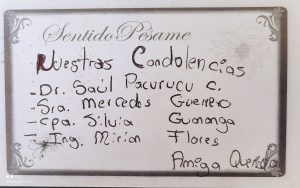 Sentido Pésame
Nuestras Condolencias
- Dr. Saúl Pacurucu C.
- Sra. Mercedes Guerrero
- Cpa. Silvia Guananga
- Ing. Mirian Flores
Amiga Querida